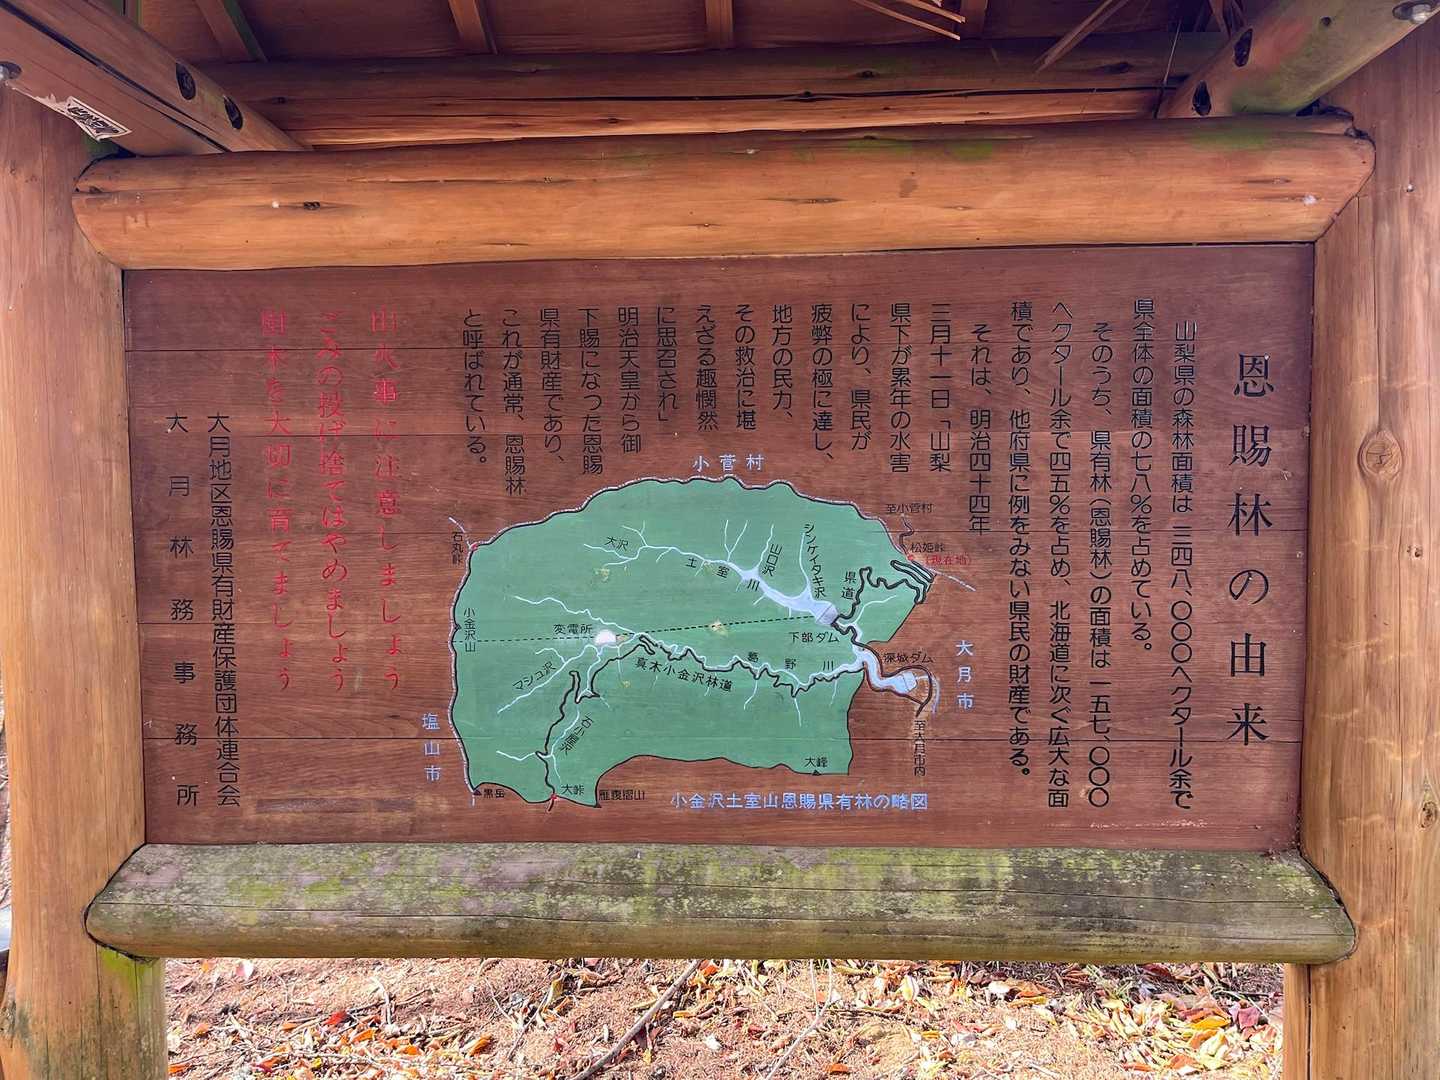 恩賜林の由来
山梨県の森林面積は三四八、〇〇〇ヘクタール余で
県全体の面積の七八%を占めている。
そのうち、県有林(恩賜林)の面積は一五七、〇〇〇
ヘクタール余で四五%を占め、北海道に次ぐ広大な面
積であり、他府県に例をみない県民の財産である。
それは、明治四十四年
三月十一日「山梨
県下が累年の水害
により、県民が
疲弊の極に達し、
地方の民力、
その救治に堪
えざる趣憫然
に思召され」
明治天皇から御
下賜になった恩賜
県有財産であり、
これが通常、恩賜林
と呼ばれている。
山火事に注意しましょう
ごみの投げ捨てはやめましょう
樹木を大切に育てましょう
大月地区恩賜県有財産保護団体連合会
大月林務事務所
小菅村
至小菅村
松姫峠
(現在地)
石丸峠
大沢
土室川
山口沢
シンケイタキ沢
県道
小金沢山
変電所
下部ダム
深城ダム
大月市
マシコ沢
真木小金沢林道
葛野川
塩山市
至大月市内
大峰
黒岳
大峠
雁腹摺山
小金沢土室山恩賜県有林の略図